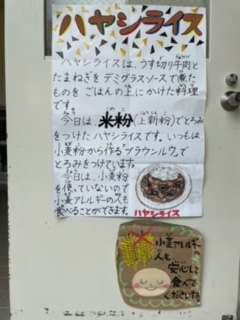 ハヤシライス
ハヤシライスは、うす切り牛肉と
たまねぎをデミグラスソースで煮た
ものを ごはんの上にかけた料理
です。
今日は、米粉(上新粉)でとろみ
をつけたハヤシライスです。いつもは
小麦粉から作る"ブラウンルウ"で
とろみをつけています。
今日は、小麦粉
を使っていないので
小麦アレルギーの人も
食べることができます。
ハヤシライス
小麦アレルギーの
人も
安心して
食べて
くださいね